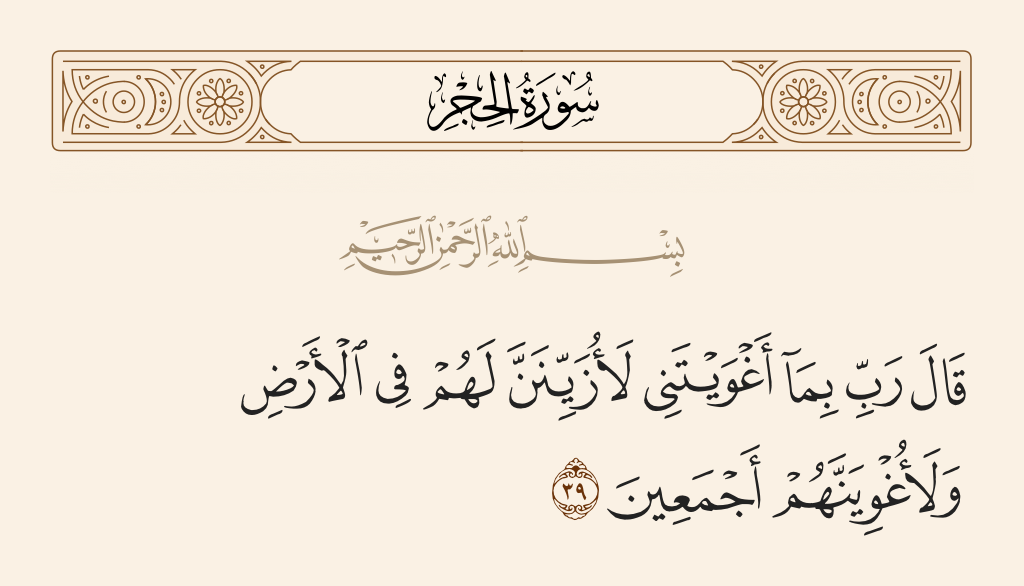 سُورَةُ الحِجْرِ
بِسْمِ ٱللَّهِ ٱلرَّحْمَٰنِ ٱلرَّحِيمِ
قَالَ رَبِّ بِمَآ أَغْوَيْتَنِى لَأُزَيِّنَنَّ لَهُمْ فِى ٱلْأَرْضِ
وَلَأُغْوِيَنَّهُمْ أَجْمَعِينَ ٣٩